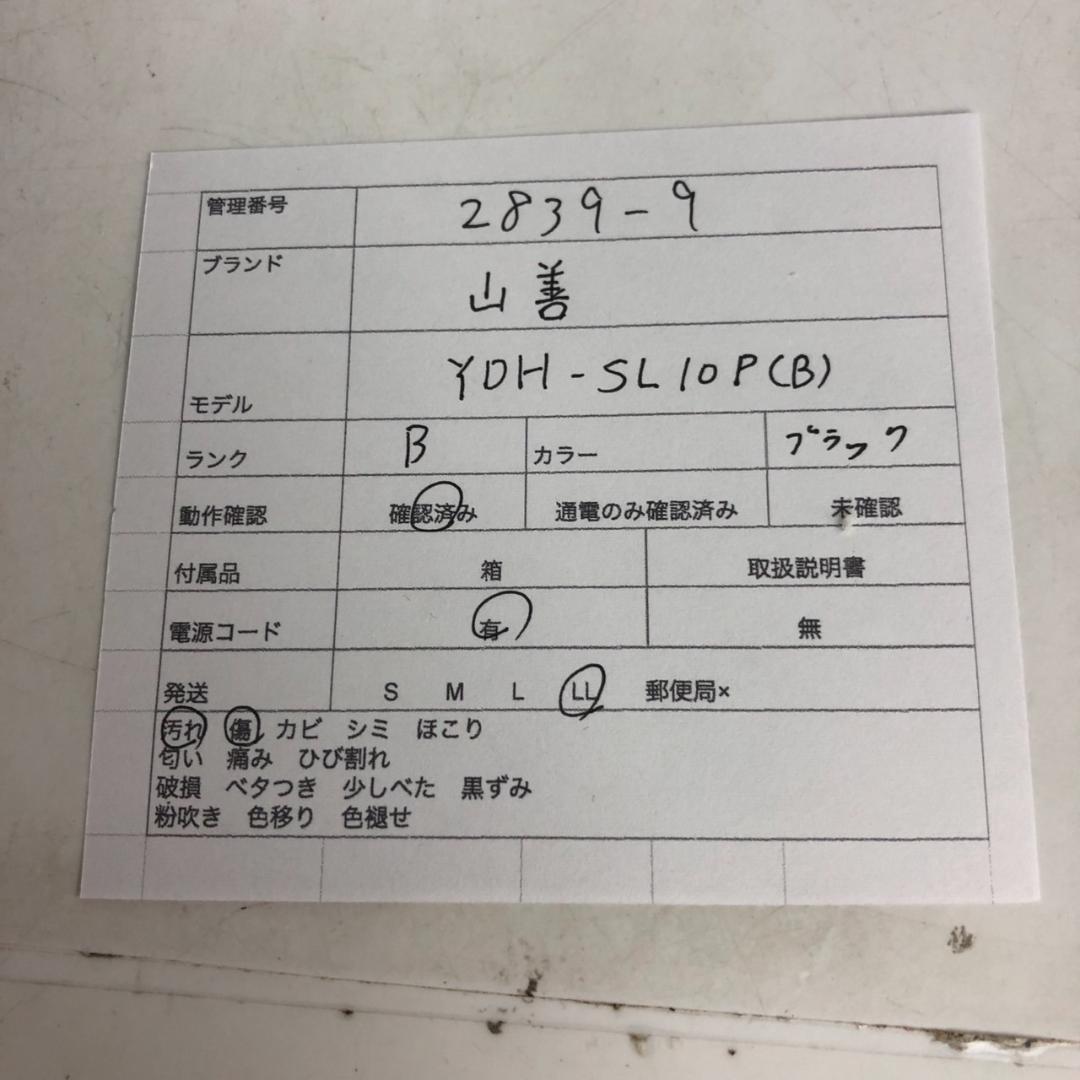 管理番号 2839-9
ブランド 山善
モデル YDH-SL10P(B)
ランク B カラー ブラック
動作確認 確認済み 通電のみ確認済み 未確認
付属品 箱 取扱説明書
電源コード 有 無
発送 S M L LL 郵便局×
汚れ 傷 カビ シミ ほこり
匂い 痛み ひび割れ
破損 ベタつき 少しべた 黒ずみ
粉吹き 色移り 色褪せ